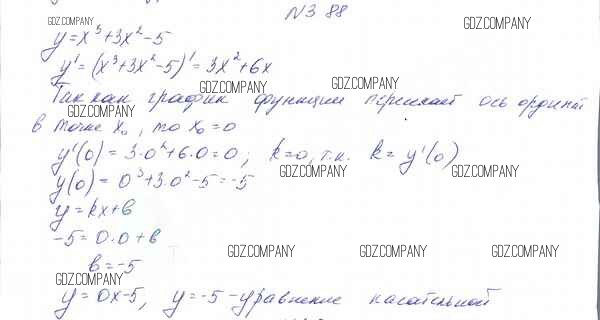 N388
GDZ.COMPANY GDZ.COMPANY
y=x³+3x²-5
y'=(x³+3x²-5)'=3x²+6x
GDZ.COMPANY GDZ.COMPANY
Так как график функции пересекает ось ординат
GDZ.COMPANY
в точке x₀, то x₀=0
y'(0)=3·0²+6·0=0; k=0, т.к. k=y'(0)
GDZ.COMPANY GDZ.COMPANY
y(0)=0³+3·0²-5=-5
y=kx+b
-5=0·0+b
GDZ.COMPANY GDZ.COMPANY GDZ.COMPANY
b=-5
GDZ.COMPANY
y=0x-5, y=-5 - уравнение касательной